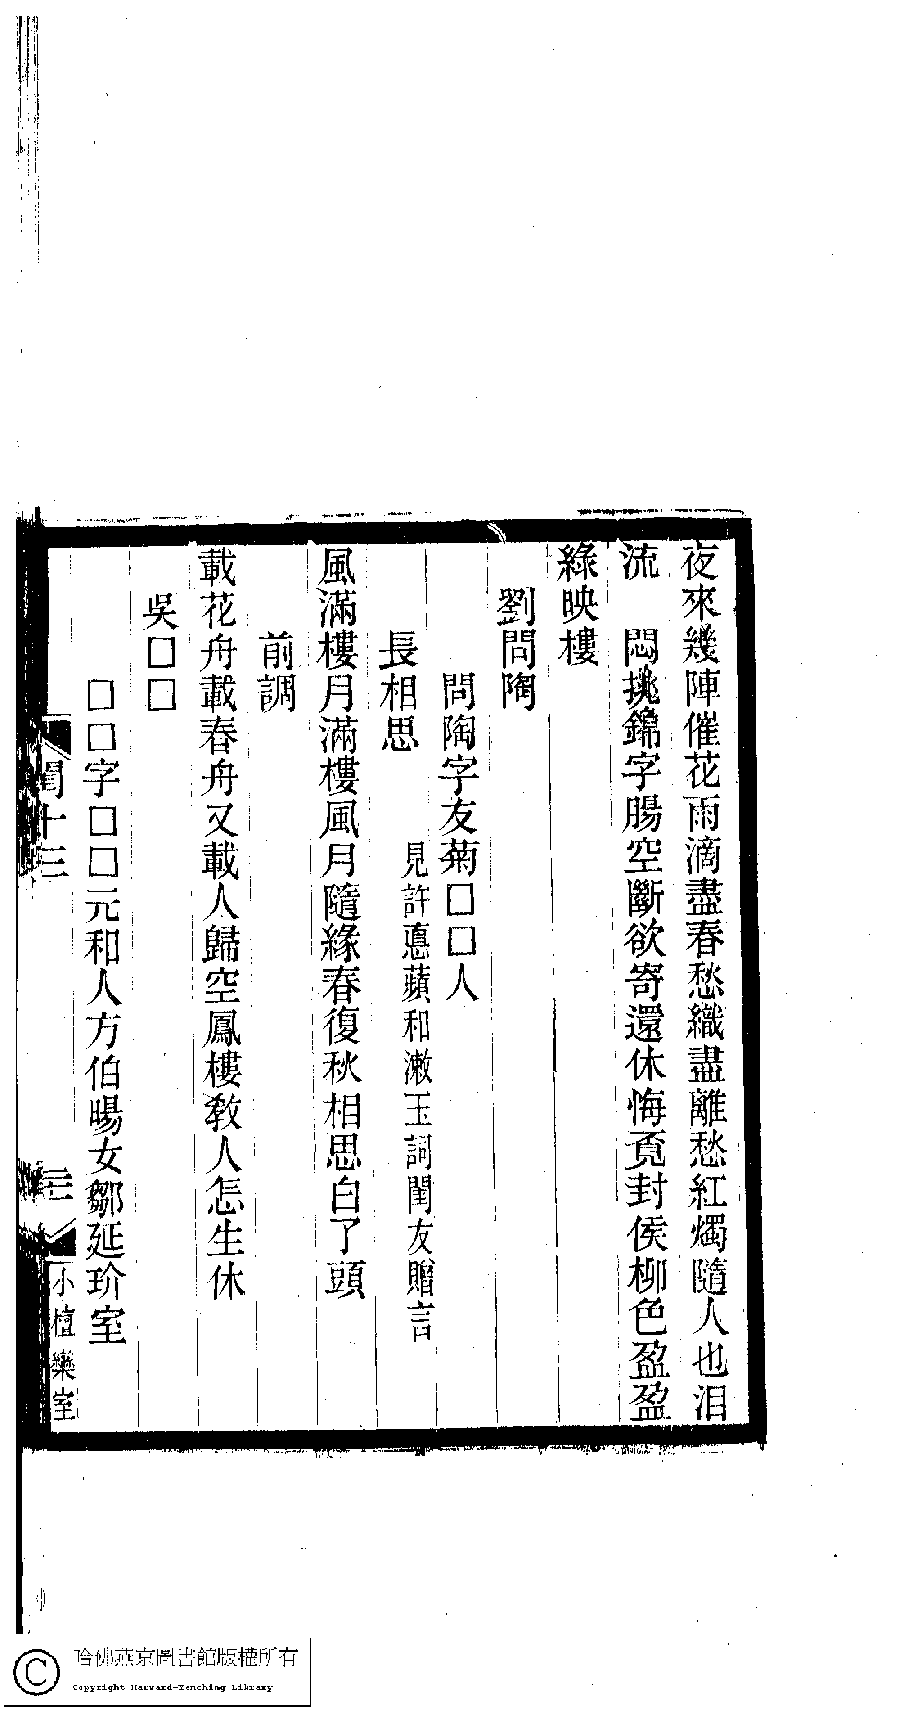 夜來幾陣催花雨滴盡春愁織盡離愁紅燭隨人也泪
流　悶挑錦字腸空斷欲寄還休悔覓封侯柳色盈盈
綠映樓
劉問陶
問陶字友菊□□人
長相思　見許憙蘋和漱玉詞閨友贈言
風滿樓月滿樓風月隨緣春復秋相思白了頭
前調
載花舟載春舟又載人歸空鳳樓教人怎生休
吳□□
□□字□□元和人方伯暘女鄒延玠室
閨十三
小檀欒室
哈佛燕京圖書館版權所有
Copyright Harvard-Yenching Library